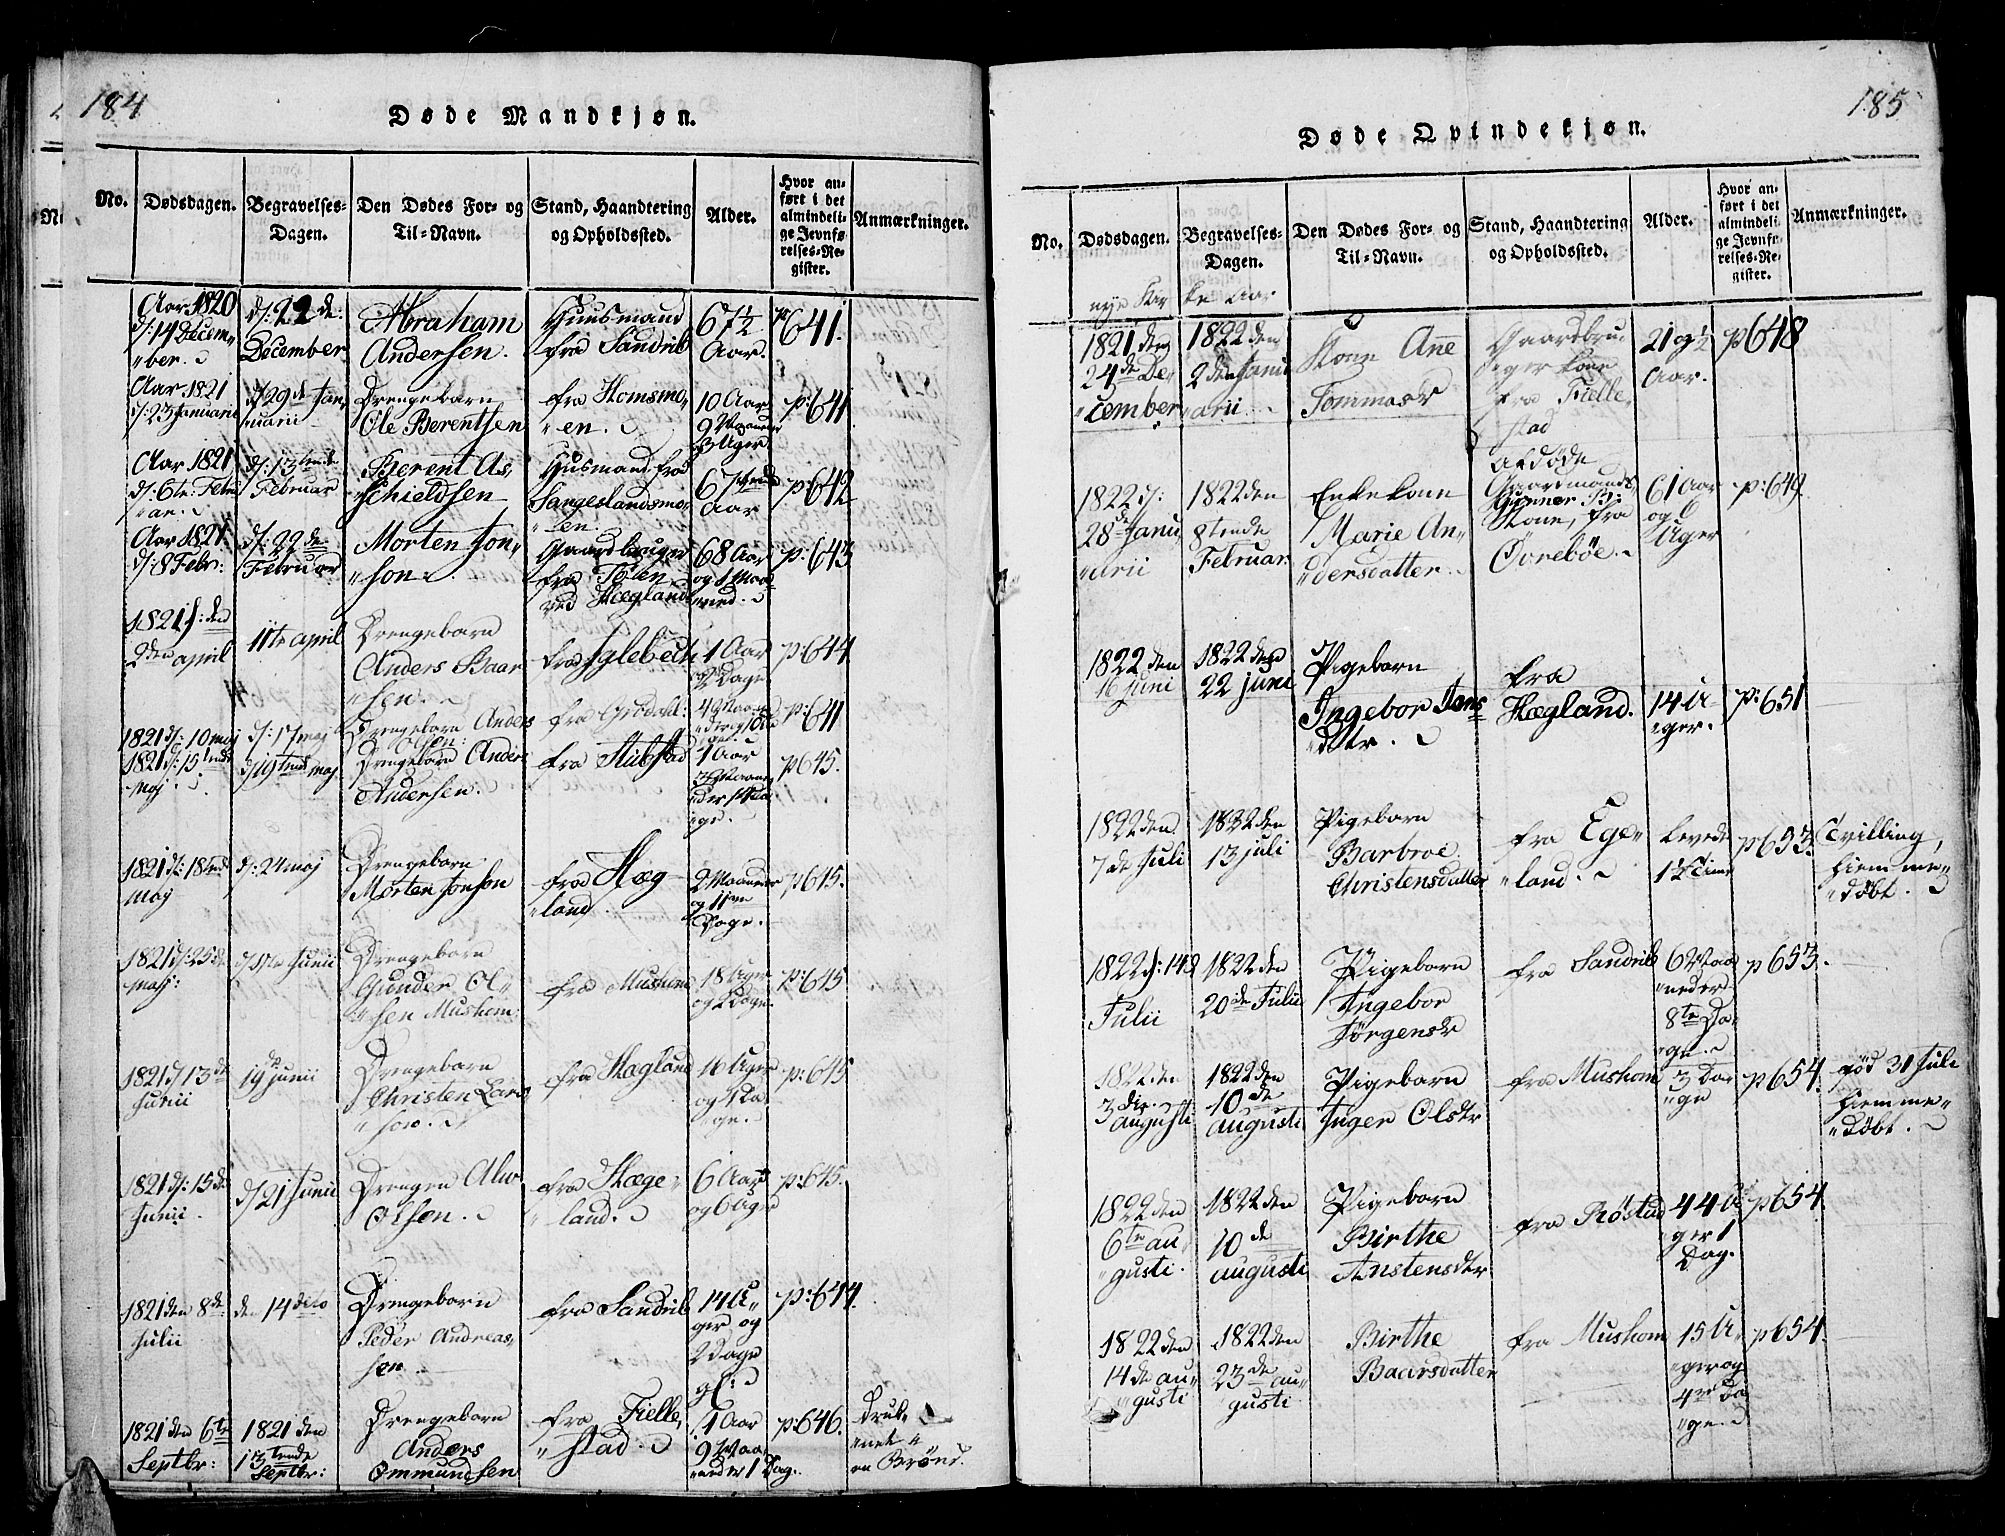 184
Døde Mandkjøn.
No.
Dødsdagen.
Begravelses-
Dagen.
Den Dødes For- og
Til-Navn.
Stand, Haandtering
og Opholdssted.
Alder.
Hvor an-
ført i det
almindeli-
ge Jevnfø-
relses-Re-
gister.
Anmærkninger.
Aar 1820
d: 14 Decem-
"ber.
d: 22de:
December
Abraham
Andersen.
Huusmand
fra Sandrib
67½
Aar.
p 641.
Aar 1821
d: 23 Januarii
d 29de Jan-
nuarii
Drengebarn
Ole Berentsen
fra Homsmo-
"en.
10 Aar
9 Maaneder
3 Uger
p: 641
Aar 1821
d: 6te: Febru
"ar.
d: 13tende
Februar
Berent As-
"schieldsen
Husmand fra
Langeslandsmo-
"en.
67
Aar
p: 642
Aar 1821
d: 8 Febr:
d: 22de
Februar
Morten Jon-
"son.
Gaardbruger
fra
ved Hægland
68 Aar
og 1 Maa
"ned.
p: 643
1821 d: den
2den april
11te april
Drengebarn
Anders Baar
"sen.
fra Iglebech
1 Aar
2 Dage
p: 644
1821 d: 10 maj
d: 17 maj
Drengebarn Anders
Olsen.
fra
p: 641
1821 d: 15tende
Maj.
d 19tende maj
Drengebarn Anders
Andersen.
fra Stubstad
1 Aar
p 645.
1821 d: 18tende
Maj
d: 24 maj
Drengebarn
Morten Jonson
fra Hæg-
"land.
2 Maaneder
og 11
Dage.
p 645.
1821 d: 25de
Maji:
Junii
Drengebarn
Gunder Ol-
"sen Mushom.
fra Mushom
18 Uger
og 2 Dage.
p: 645
1821 d 13de
Junii
19de junii
Drengebarn
Christen Lars
"son.
fra Hægland
16 Uger
og Da
"ge.
p: 645
1821 d: 15de
Junii
d 21 Junii
Drengen
Olsen.
fra Hæge-
"land.
6 Aar
og 6 Uger
p: 645.
1821 den 8de
Julii
den 14 dito
Drengebarn
Peder Andreas-
"son.
fra Sandrib
14 U-
ger og
2 Dage
gl:
p: 644.
1821 den 6te
Septbr:
1821 den
13tende
Septbr:
Drengebarn
Anders
Ommundsen
fra Fielle,
"stad.
1 Aar
9 Maa-
"neder 1 Dag.
p: 646.
Druk-
"net i
en Brønd.
185
Døde Qvindekjøn.
No.
Dødsdagen.
Begravelses-
Dagen.
Den Dødes For- og
Til-Navn.
Stand, Haandtering
og Opholdssted.
Alder.
Hvor an-
ført i det
almindeli-
ge Jevnfø-
relses-Re-
gister.
Anmærkninger.
nye Kir ke Aar
1821 den
24de De-
"cember
1822 den
2den Janu
"arii.
Kone Ane
Tommasdr
Gaardbru-
ger kone
fra Fielle-
stad
21 og ½
Aar.
p 648
1822 d:
28de Janu
"arii
1822 den
8tende
Februar.
Enkekone
Marie An-
"dersdatter.
afdøde
Gaardmands
Gunner
Kone, fra
Övrebøe.
61 Aar
og 6
Uger
p: 649.
1822 den
16 Juni
1822 den
22 juni
Pigebarn
Ingebor Jens
"dtr.
fra
Hægland.
14 U-
"ger.
p: 651
1822 den
7de Juli
1822 den
13 juli
Pigebarn
Barbroe
Christensdatter
fra Ege-
"land.
Levede
1½ Time
p 653.
Tvilling,
hiemme-
"døbt.
1822 d: 14d
Julii
1822 den
20de Julii
Pigebarn
Ingebor
Jörgensdr
fra Sandrib
6 Maa
"neder
8te Da-
"ge.
p 653.
1822 den
3die
augusti
1822 den
10de
augusti
Pigebarn
Inger Olsdtr
fra Mushom
3 Da-
"ge
p 654.
fød 31 Juli
hiemme-
"døbt.
1822 den
6te au-
"gusti.
1822 den
10de
augusti
Pigebarn
Birthe
Anstensdtr
fra Röstad
44 U-
"ger 1
Dag.
p 654.
1822 den
14de au-
"gusti
1822 den
23de au-
gusti
Birthe
Baarsdatter
fra Mushom
15 U-
"ger og
4re Da
"ge.
p 654.